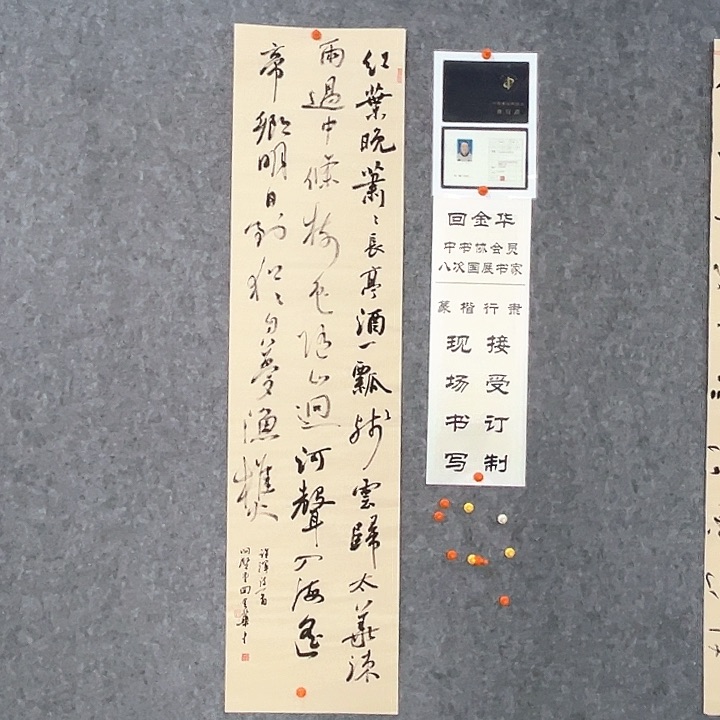 紅葉晚蕭々長亭酒一瓢殘雲歸太華疎
雨過中條樹色隨山迥河聲入海遙
帝鄉明日到猶自夢漁樵
許渾詩一首
回金华
中书协会员
八次国展书家
篆楷行隶
接受订制
现场书写